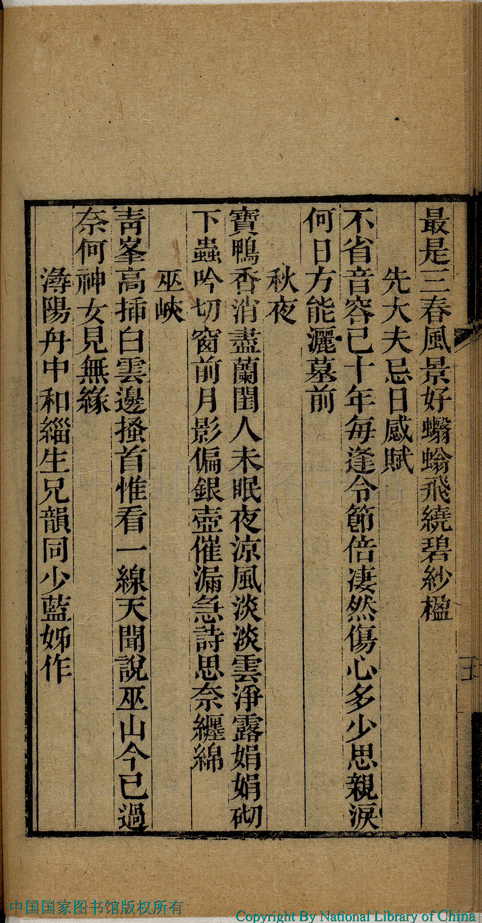 最是三春風景好蠮螉飛繞碧紗櫺
先大夫忌日感賦
不省音容已十年每逢令節倍淒然傷心多少思親淚
何日方能灑墓前
秋夜
寶鴨香消盡蘭閨人未眠夜涼風淡淡雲淨露娟娟砌
下蟲吟切窗前月影偏銀壺催漏急詩思奈纏綿
巫峽
靑峯高揷白雲邊搔首惟看一線天聞說巫山今已過
奈何神女見無緣
潯陽舟中和緇生兄韻同少藍姊作
中国国家图书馆版权所有
Copyright By National Library of China